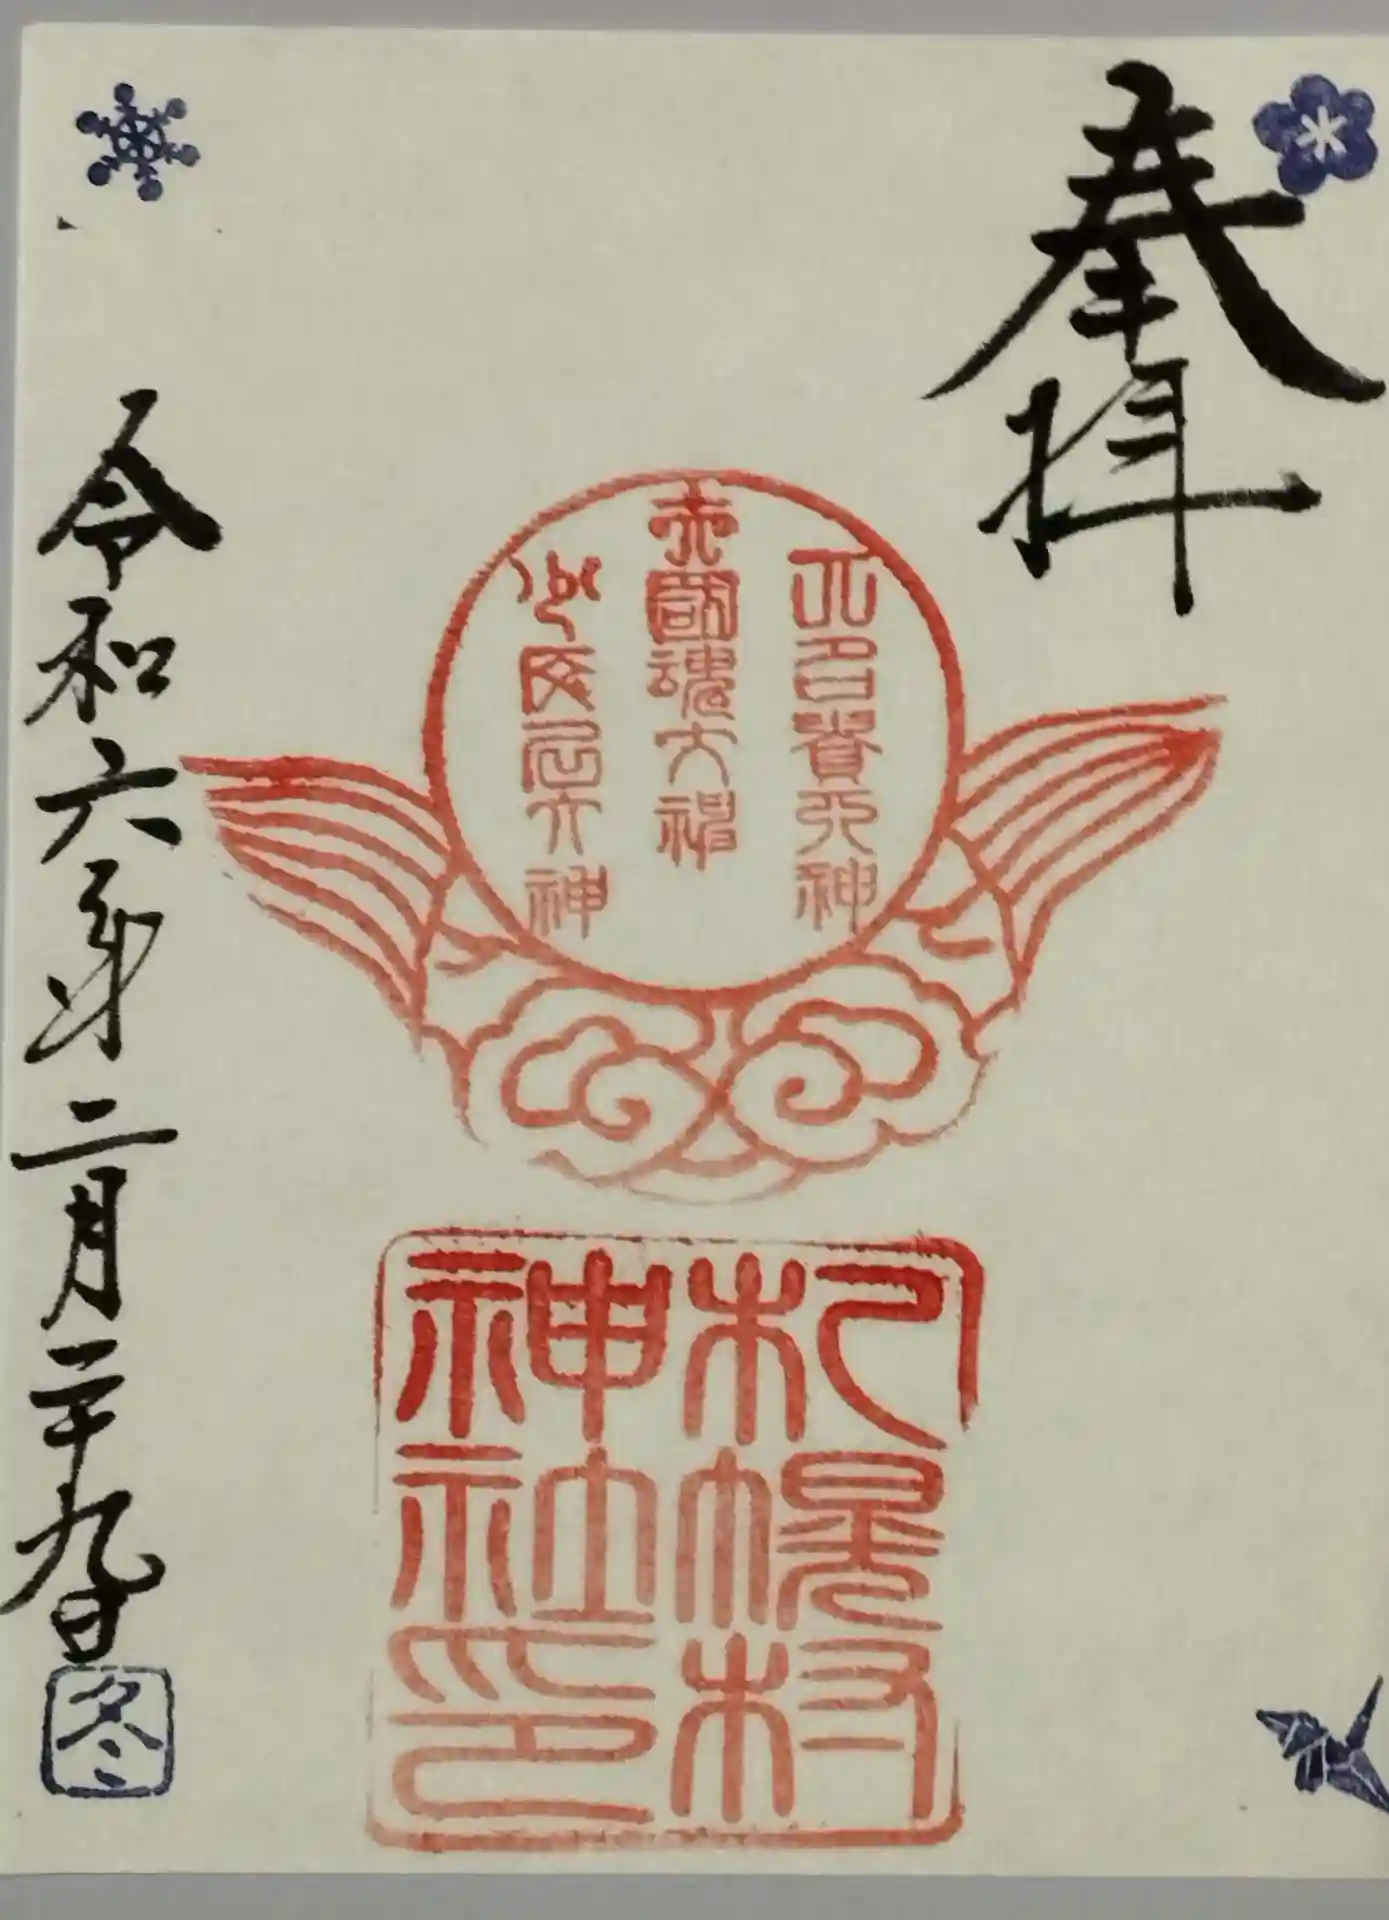 奉拝
大名貴大神
大國魂大神
少彦名大神
札幌村
神社印
令和六年二月二十九日
冬